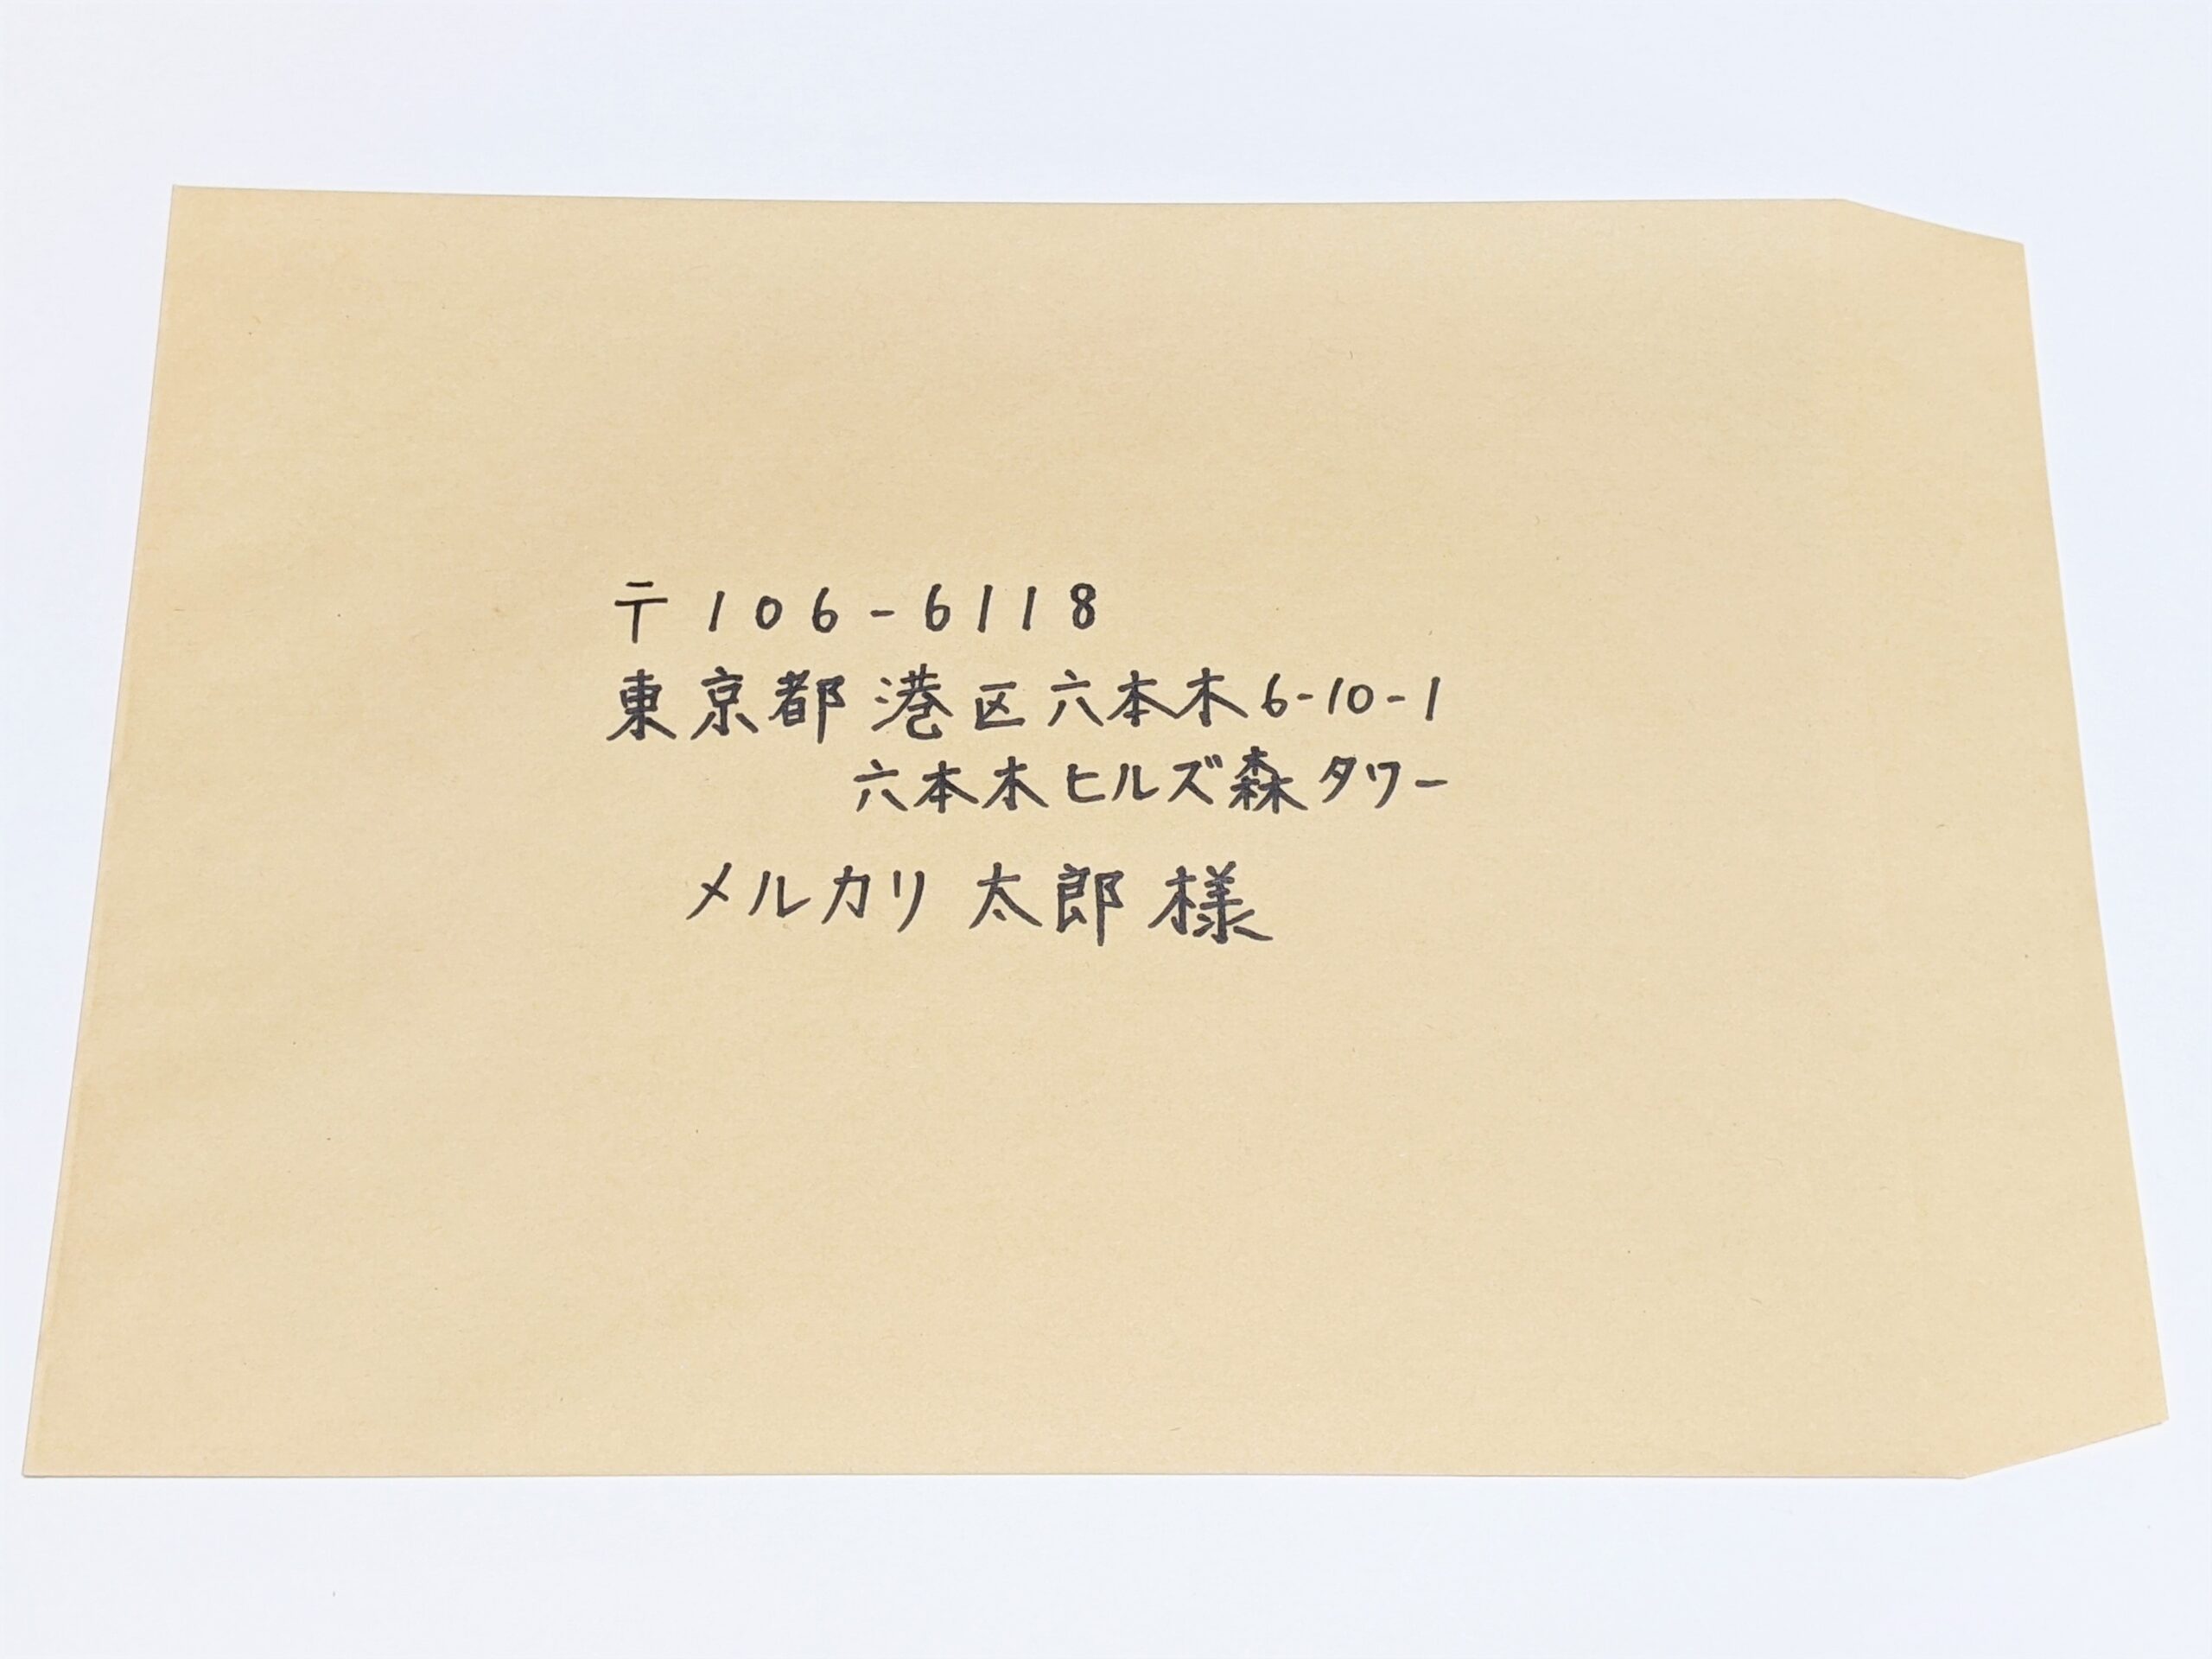 〒106-6118
東京都港区六本木6-10-1
六本木ヒルズ森タワー
メルカリ 太郎 様